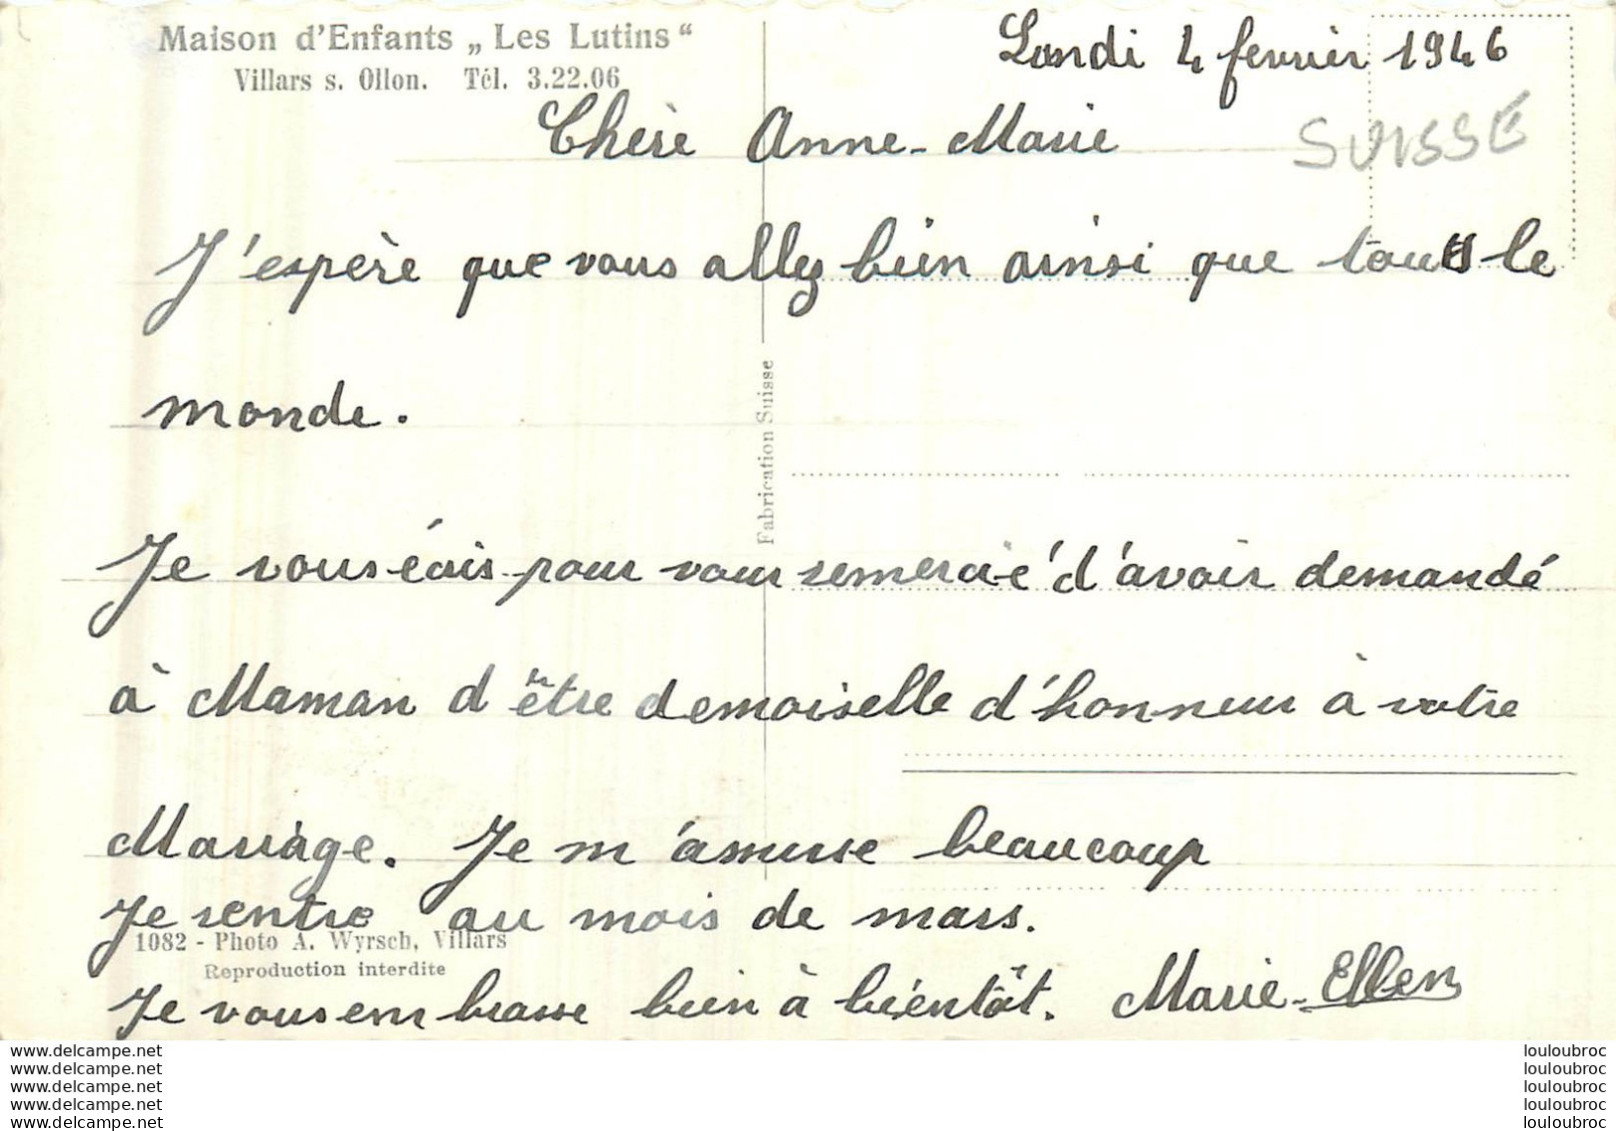 Maison d'Enfants „Les Lutins“
Villars s. Ollon. Tél. 3.22.06
Lundi 4 fevrier 1946
SUISSE
Chère Anne-Marie
J'espère que vous allez bien ainsi que tous le
monde.
Fabrication Suisse
Je vous écris pour vous remercié d'avoir demandé
à Maman d'être demoiselle d'honneur à votre
Mariage. Je m'amuse beaucoup
Je rentre au mois de mars.
1082 - Photo A. Wyrsch, Villars
Reproduction interdite
Je vous embrasse bien à bientôt. Marie-Ellen
www.delcampe.net
www.delcampe.net
www.delcampe.net
www.delcampe.net
www.delcampe.net
louloubroc
louloubroc
louloubroc
louloubroc
louloubroc